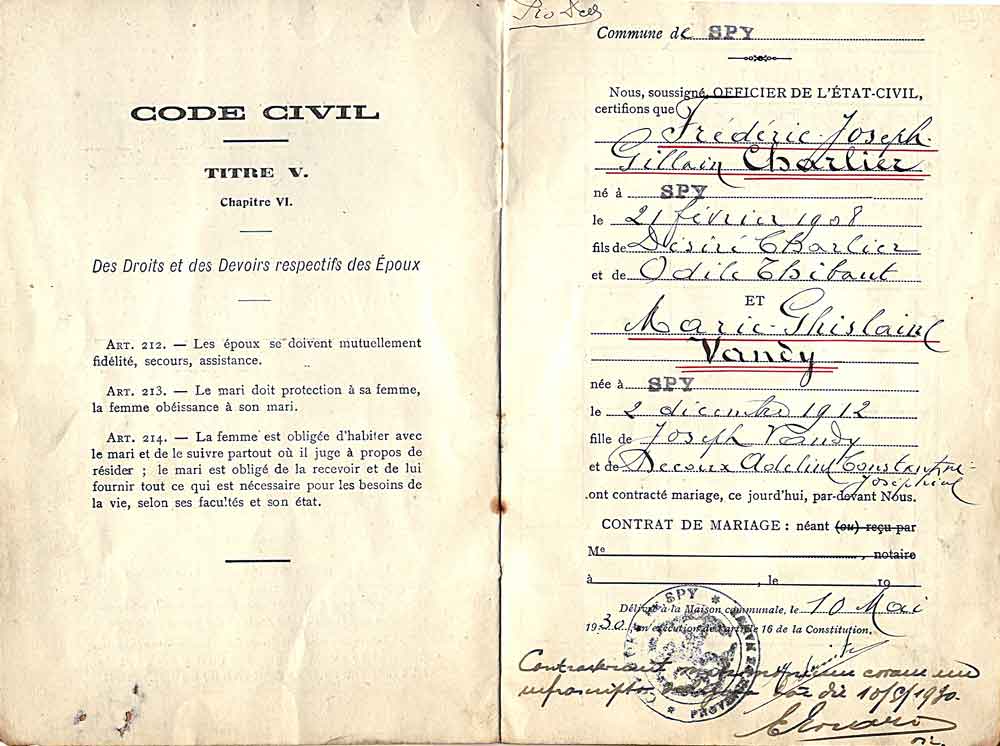 CODE CIVIL
TITRE V.
Chapitre VI.
Des Droits et des Devoirs respectifs des Époux
ART. 212. — Les époux se doivent mutuellement
fidélité, secours, assistance.
ART. 213. — Le mari doit protection à sa femme,
la femme obéissance à son mari.
ART. 214. — La femme est obligée d'habiter avec
le mari et de le suivre partout où il juge à propos de
résider ; le mari est obligé de la recevoir et de lui
fournir tout ce qui est nécessaire pour les besoins de
la vie, selon ses facultés et son état.
Commune de SPY
Nous, soussigné, OFFICIER DE L'ÉTAT-CIVIL,
certifions que
Frédéric-Joseph-
Gillain Charlier
né à SPY
le 21 février 1908
fils de Désiré Charlier
et de Odile Thibaut
ET
Marie-Ghislaine
Vandy
née à SPY
le 2 décembre 1912
fille de Joseph Vandy
et de Decoux Adeline Constantine-
Joséphine
ont contracté mariage, ce jourd'hui, par-devant Nous.
CONTRAT DE MARIAGE : néant (ou) reçu par
Me , notaire
à , le 19
Délivré à la Maison communale, le 10 Mai
1930 en exécution de l'article 16 de la Constitution.
SPY
Contraxerunt coram me
infrascripto die 10/5/1930.